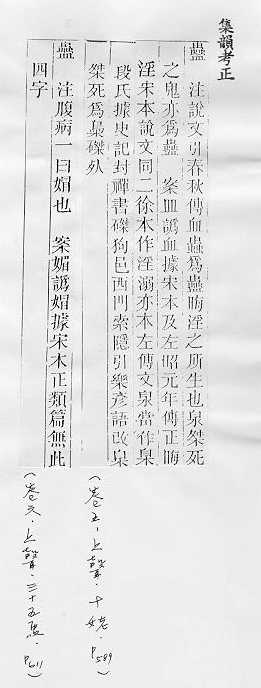 集韻考正
蠱　注說文引春秋傳血蟲爲蠱晦淫之所生也泉桀死
之鬼亦爲蠱　案皿譌血據宋本及左昭元年傳正晦
淫宋本說文同二徐本作淫溺亦本左傳文泉當作梟
段氏據史記封禪書磔狗邑西門索隱引樂彥語改梟
桀死爲梟磔死
蠱　注腹病一曰媢也　案媚譌媢據宋本正類篇無此
四字
(卷五·上聲·十姥·P589)
(卷六·上聲·三十五馬·P611)